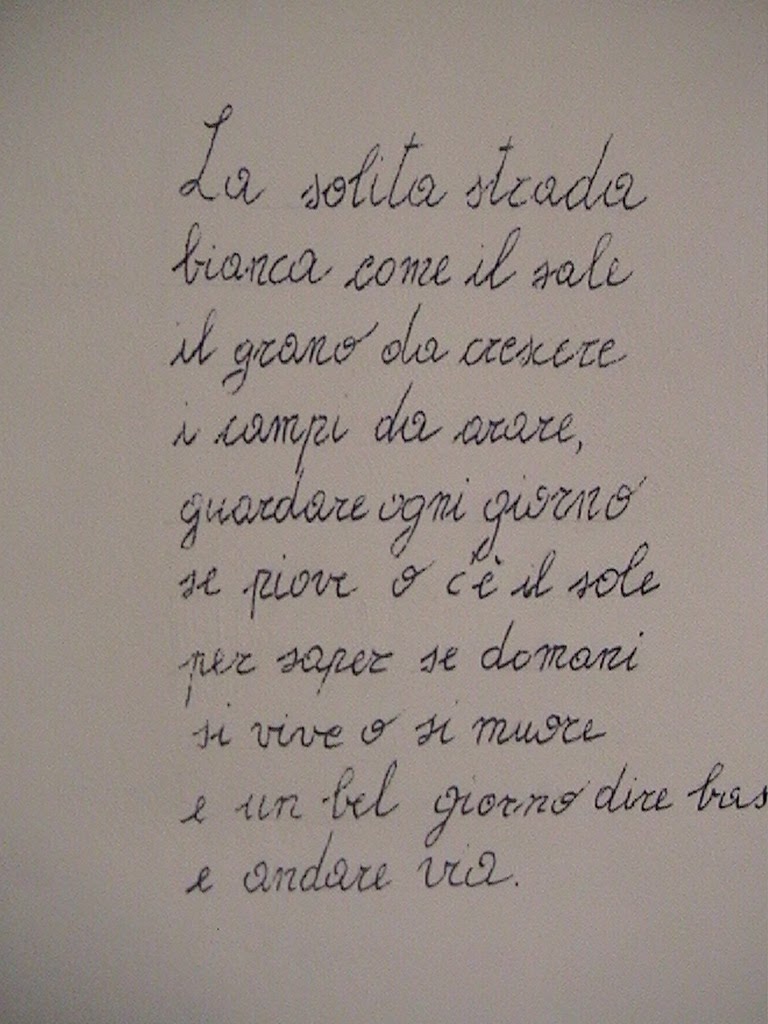 La solita strada
bianca come il sale
il grano da crescere
i campi da arare,
guardare ogni giorno
se piove o c'è il sole
per saper se domani
si vive o si muore
e un bel giorno dire bas
e andare via.